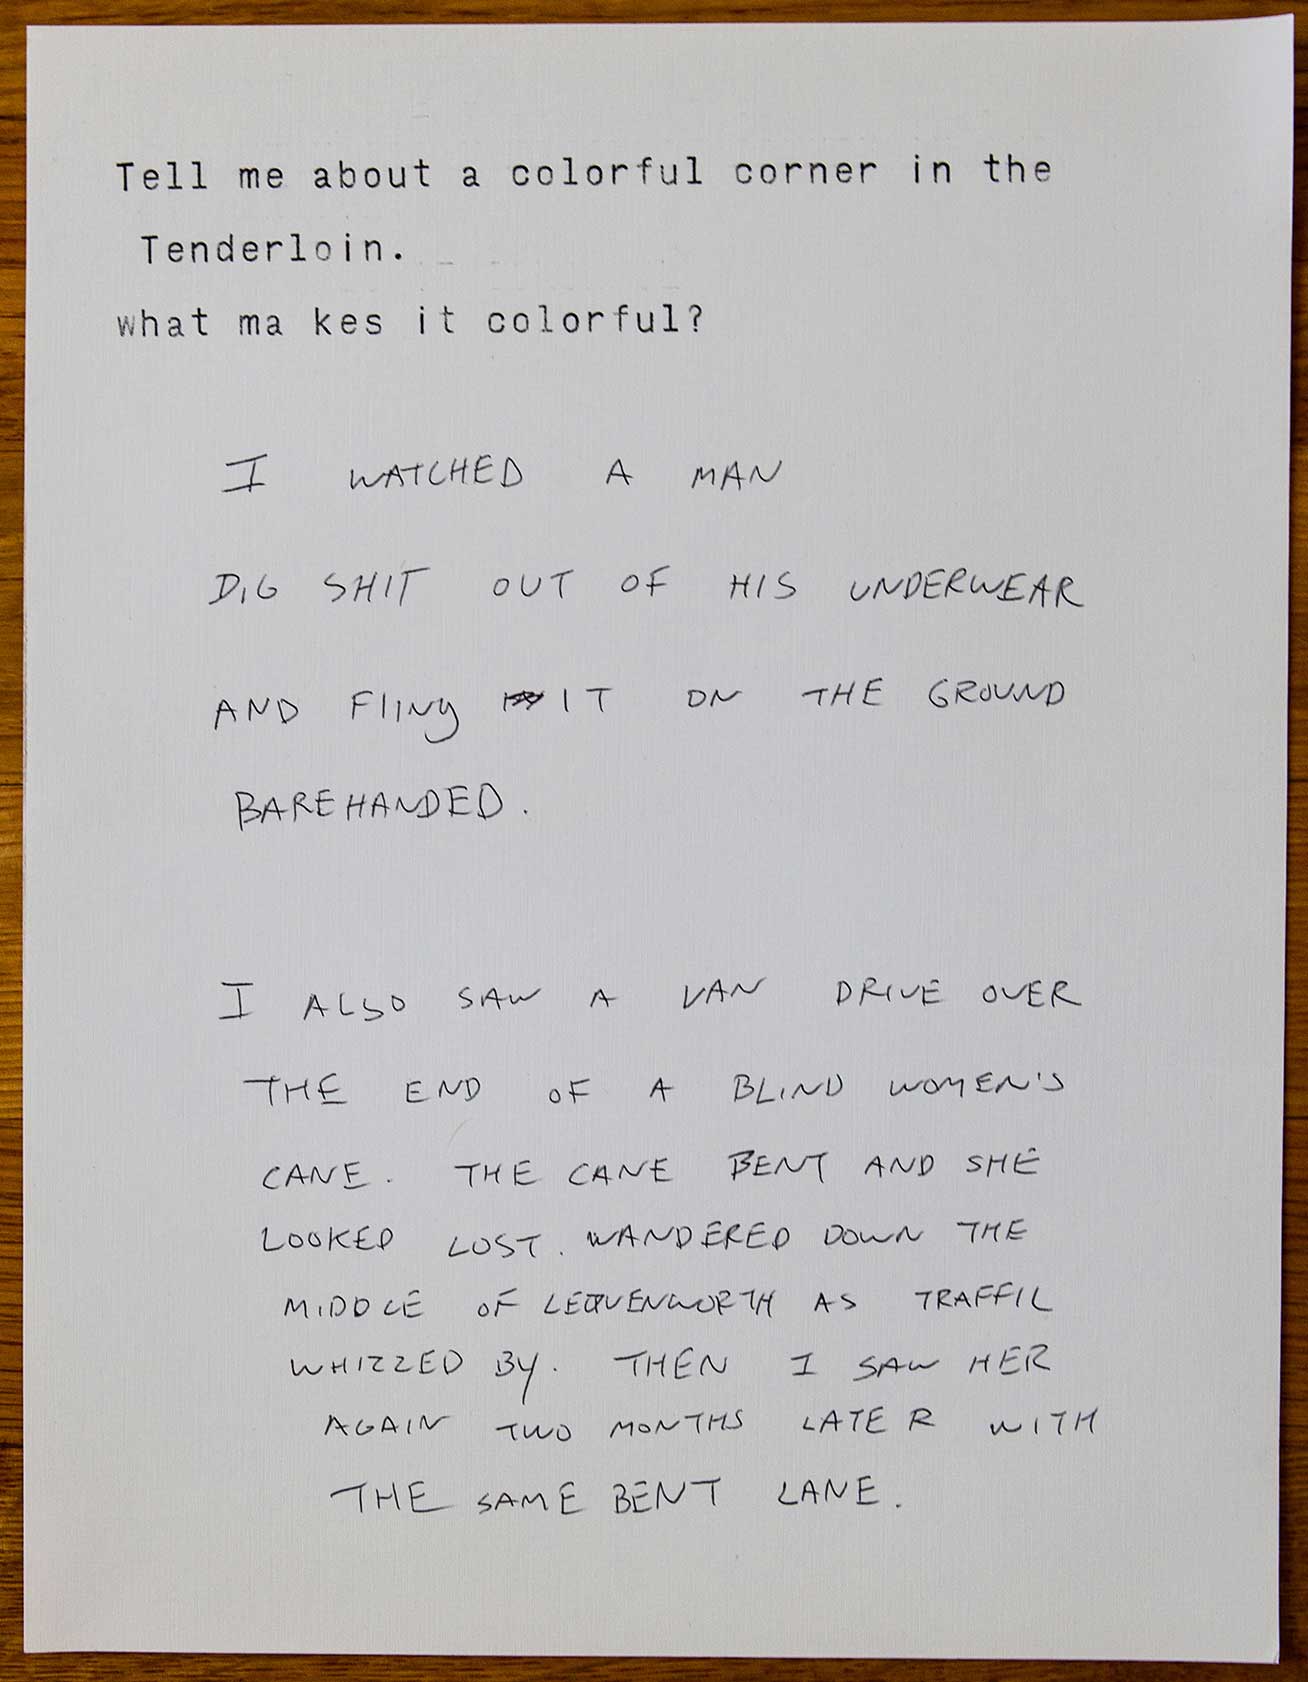 Tell me about a colorful corner in the
Tenderloin.
what ma kes it colorful?
I WATCHED A MAN
DIG SHIT OUT OF HIS UNDERWEAR
AND FliNg IT ON THE GROUND
BAREHANDED.
I ALSO SAW A VAN DRIVE OVER
THE END OF A BLIND WOMEN'S
CANE. THE CANE BENT AND SHE
LOOKED LOST. WANDERED DOWN THE
MIDDLE OF LEAVENWORTH AS TRAFFIC
WHIZZED BY. THEN I SAW HER
AGAIN TWO MONTHS LATER WITH
THE SAME BENT CANE.